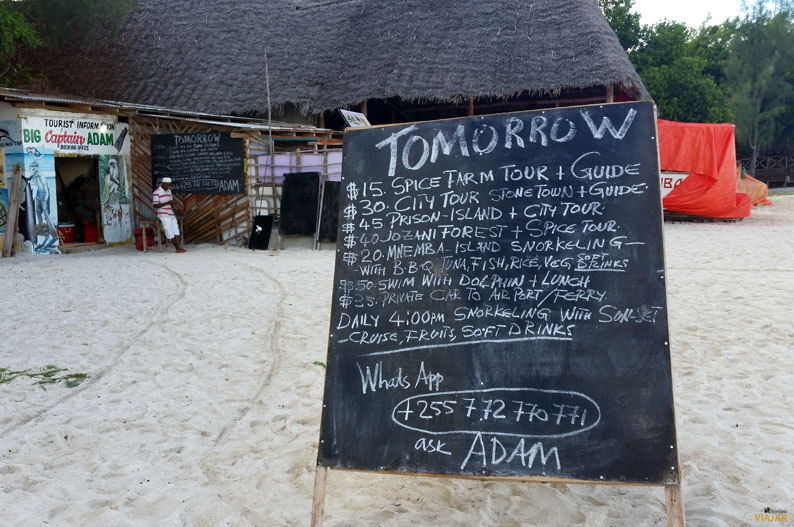 TOURIST INFORMATION
BIG Captain ADAM
BOOKING OFFICE
TOMORROW
ADAM
TOMORROW
$15. SPICE FARM TOUR + GUIDE
$30. CITY TOUR STONE TOWN + GUIDE
$45 PRISON-ISLAND + CITY TOUR.
$40 JOZANI FOREST + SPICE TOUR.
$20. MNEMBA-ISLAND SNORKELING-
-WITH B.B.Q TUNA, FISH, RICE, VEG SOFT DRINKS
$50. SWIM WITH DOLPHIN + LUNCH
$35. PRIVATE CAR TO AIRPORT / FERRY.
DAILY 4:00PM SNORKELING WITH SUN-SET
-CRUISE, FRUITS, SOFT DRINKS
Whats App
+255 772 770 771
ask ADAM
VIAJAR